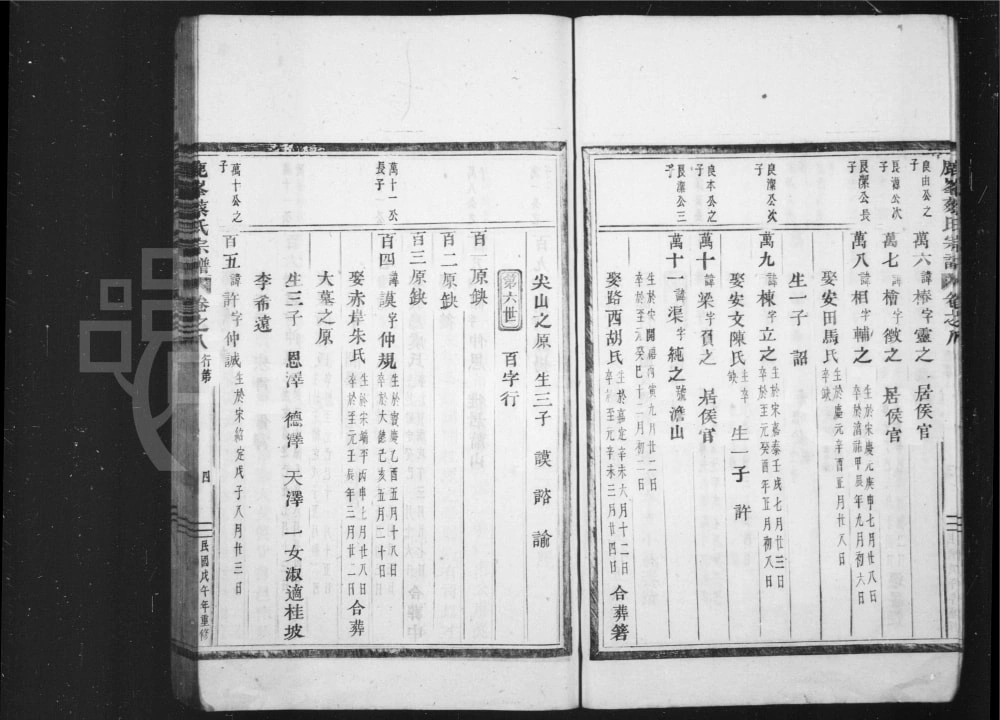 良由公之子
萬六諱椿字靈之 居侯官
良源公次子
萬七諱檜字徵之 居侯官
良潔公長子
萬八諱相字輔之 生於宋慶元庚申七月廿八日 卒於淳祐甲辰年九月初六日
娶安田馬氏 生於慶元辛酉五月廿八日 卒缺
良潔公次子
萬九諱棟字立之 生於宋嘉泰壬戌七月廿三日 卒於至元癸酉年五月初八日
生一子 詔
娶安文陳氏 生卒缺 生一子 許
良本公之子
萬十諱梁字貢之 居侯官
良潔公三子
萬十一諱渠字純之號澹山
生於宋開禧丙寅九月廿二日 卒於元癸巳十二月初二日
娶路西胡氏 生於嘉定辛未六月十二日 卒於至元辛未三月廿四日 合葬箬
尖山之原 生三子 謨 諮 諭
第六世 百字行
百一原缺
百二原缺
百三原缺
萬十一公長子
百四諱謨字仲規 生於寶慶乙酉五月十八日 卒於大德己亥五月二十日
娶赤岸朱氏 生於宋端平丙申七月廿八日 卒於至元壬辰年三月廿二日 合葬
大墓之原
生三子 恩澤 德澤 天澤 一女淑適桂坡
李希遠
萬十公之子
百五諱許字仲誠 生於宋紹定戊子八月廿三日
鹿峯蔡氏宗譜 卷之八 行第 四 民國戊午年重修